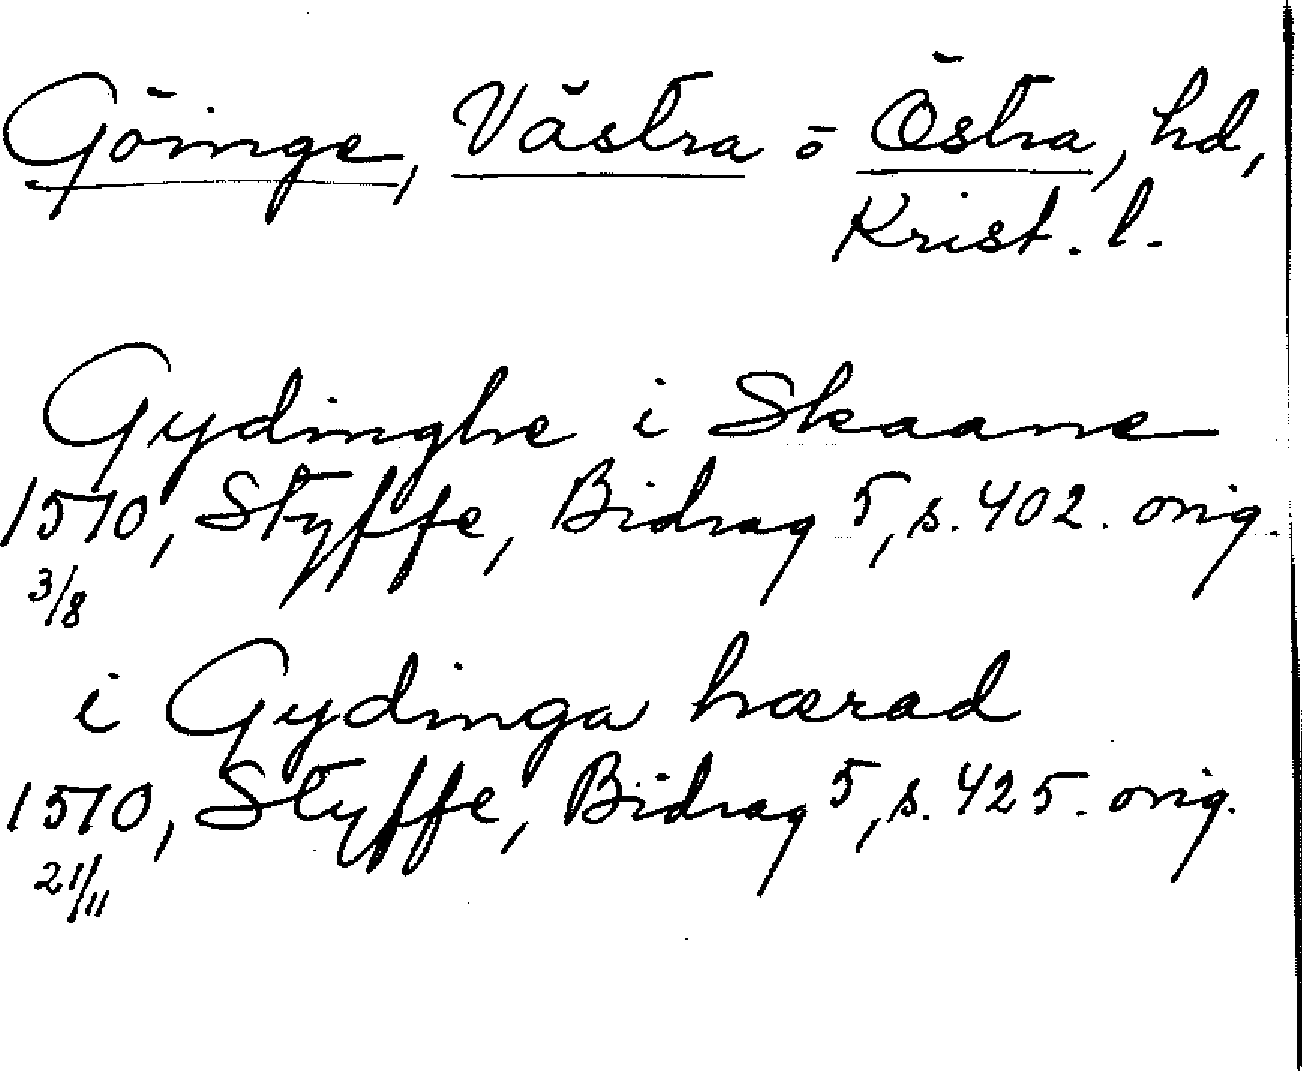 Göinge, Västra o Östra, hd,
Krist. l.
Gydinghe i Skaane
1510, Styffe, Bidrag 5, s. 402. orig.
3/8
i Gydinga hærad
1510, Styffe, Bidrag 5, s. 425. orig.
21/11